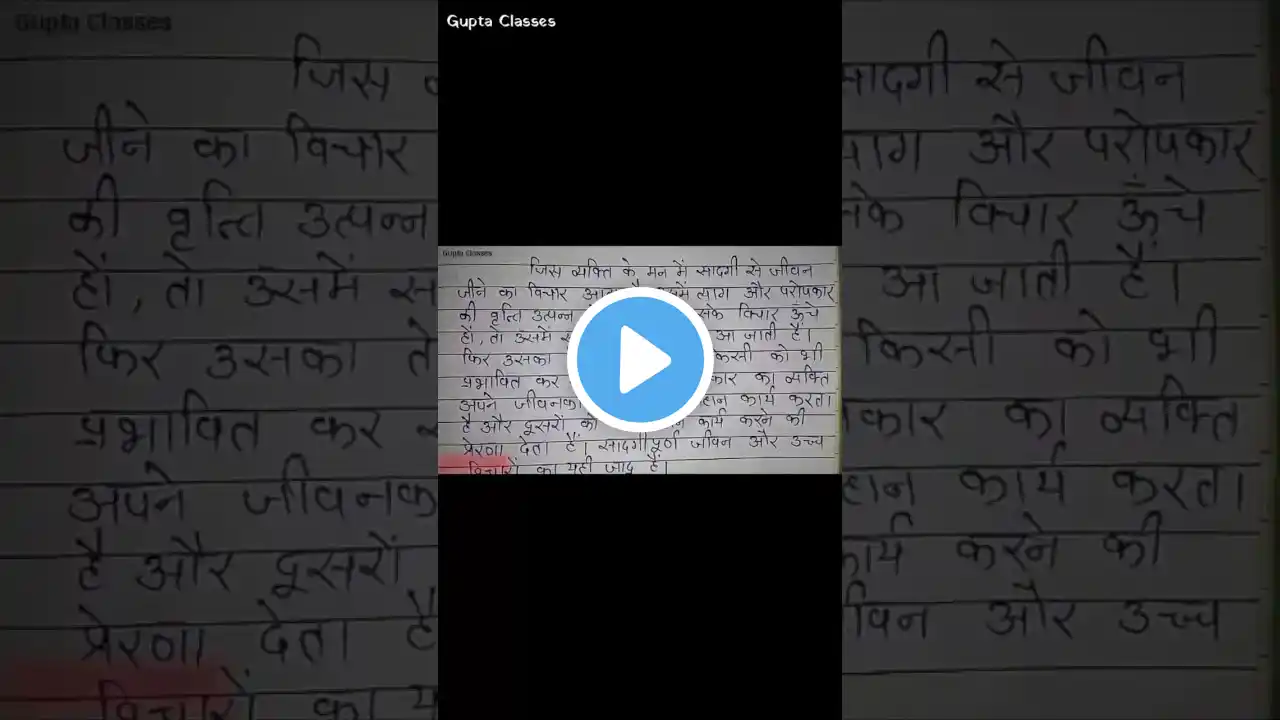 Gupta Classes
Gupta Classes
Gupta Classes
जिस व्यक्ति के मन में सादगी से जीवन
जीने का विचार आता में त्याग और परोपकार
की वृत्ति उत्पन्न सके विचार ऊँचे
हों, तो उसमें आ जाती है।
फिर उसका किसी को भी
प्रभावित कर कार का व्यक्ति
अपने जीवनका हान कार्य करता
है और दूसरों को कार्य करने की
प्रेरणा देता है। सादगीपूर्ण जीवन और उच्च
विचारों का यही जादू है।